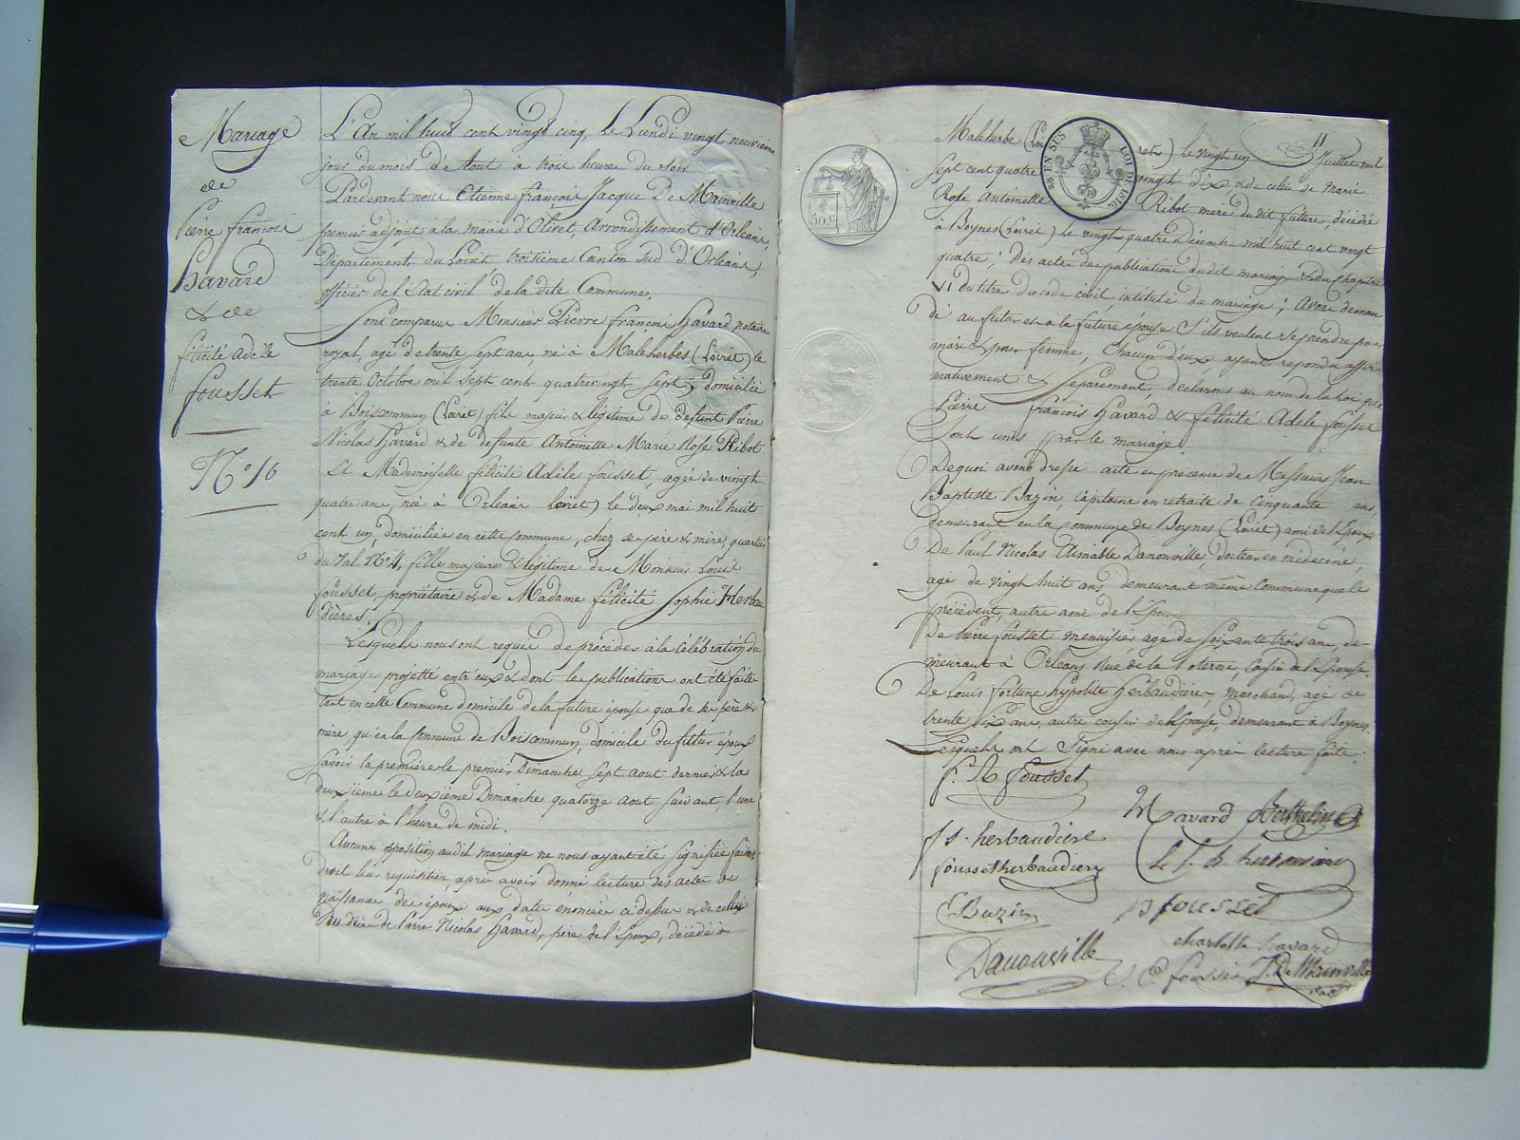 Mariage
de
Pierre françois
havard
& de
félicité adele
fousset
N° 16
L'An mil huit cent vingt cinq, le Lundi vingt neuvieme
jour du mois de Aout à trois heures du soir
Pardevant nous Etienne françois Jacque De Mainville
premier adjoint à la mairie d'Olivet, Arrondissement d'Orléans,
Département du Loiret troisième Canton Sud d'Orléans,
officier de l'état civil de la dite Commune,
Sont comparus Monsieur Pierre françois havard notaire
royal, agé de trente sept ans, né à Malesherbes (Loiret) le
trente Octobre mil sept cent quatrevingt sept, domicilié
à Boiscommun (Loiret) fils majeur & légitime de defunt Pierre
Nicolas havard & de defunte Antoinette Marie Rose Ribot
Et Mademoiselle félicité Adèle fousset, agée de vingt
quatre ans, née à Orléans (Loiret) le deux mai mil huit
cent un, domiciliée en cette commune, chez ses père & mère, quartier
du Val N° 4, fille majeure & légitime de Monsieur Louis
fousset, propriétaire & de Madame félicité Sophie Herbau
dières.
Lesquels nous ont requis de procéder à la Célébration du
mariage projetté entr'eux & dont les publications ont été faites
tant en cette Commune domicile de la future épouse que de ses père &
mère, qu'en la Commune de Boiscommun, domicile du futur époux
Savoir la première le premier Dimanche sept aout dernier & la
deuxième le deuxième Dimanche quatorze aout suivant, l'une
& l'autre à l'heure de midi.
Aucune opposition audit mariage ne nous ayant été signifiée faisant
droit à leur requisition, après avoir donné lecture des actes de
naissance des époux aux dates enoncées ci dessus & de celui
du décès de Pierre Nicolas havard, père de l'Epoux, décédé à
Malesherbe le vingt un Juillet mil
sept cent quatre vingt dix & de celui de Marie
Rose Antoinette Ribot mere du dit futur, décédée
à Boynes (Loiret) le vingt quatre Décembre mil huit cent vingt
quatre; des actes de publications dudit mariage & du chapitre
VI du titre du code civil, intitulé du mariage; avons deman
dé au futur et à la future épouse s'ils veulent se prendre pour
mari & pour femme, chacun d'eux ayant répondu affir
mativement & separement, declarons au nom de la loi que
Pierre françois havard & félicité Adele fousset
sont unis par le mariage.
De quoi avons dressé acte en presence de Messieurs Jean
Baptiste Bazin, capitaine en retraite de cinquante ans
demeurant en la commune de Boynes (Loiret) ami de l'Epoux
De Paul Nicolas Aimable Danonville, docteur en médecine,
agé de vingt huit ans demeurant même commune que le
précédent, autre ami de l'Epoux
De Pierre fousset menuisier agé de soixante trois ans, de
meurant à Orléans Rue de la Poterne, cousin de l'Epouse.
De Louis fortune hypolite Herbaudières, marchand, agé de
trente six ans, autre cousin de l'Epouse, demeurant à Boynes.
Lesquels ont signé avec nous après lecture faite.
f. A fousset
Havard
Berthelin
f S. herbaudiere
fousset herbaudiere
L f h herbaudiere
Bazin
P fousset
Danonville
charlotte havard
fousset J. De Mainville